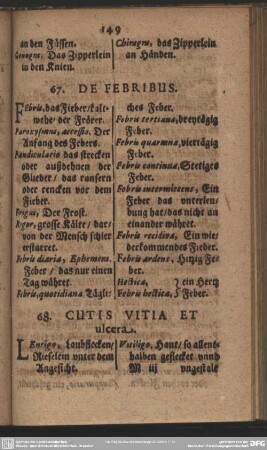 149
an den Füssen.
Genugra, Das Zipperlein
in den Knien.
Chiragra, das Zipperlein
an Händen.
67. DE FEBRIBUS.
Febris, das Fieber/kalt-
wehe/ der Frörer.
Paroxysmus, accessio, Der
Anfang des Febers.
Pandiculatio das strecken
oder außdehnen der
Glieder/ das ransen
oder rencken vor dem
Fieber.
Frigus, Der Frost.
Rigor, grosse Kälte/ dar-
von der Mensch schier
erstarret.
Febris diaria, Ephemera.
Feber/ das nur einen
Tag währet.
Febris, quotidiana Tägli-
ches Feber.
Febris tertiana, dreytägig
Feber.
Febris quartana, viertägig
Feber.
Febris continua, Stetiges
Feber.
Febris intermittens, Ein
Feber das unterlen-
bung hat/das nicht an
einander währet.
Febris recidiva, Ein wie-
derkommendes Fieber.
Febris ardens, Hitzig Fe-
ber.
Hectica, } ein Hertz
Febris hectica, } Feber.
68. CUTIS VITIA ET
ulcera.
LEntigo, Laubflecken/
Rieselein unter dem
Angesicht.
Vitiligo, Haut/ so allent-
halben geflecket unnd
M iij ungestale